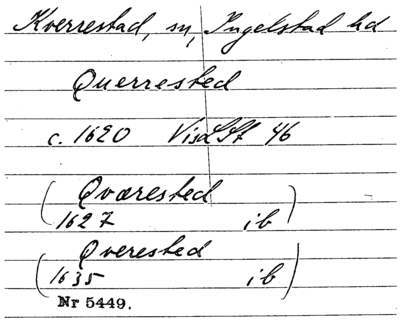 Kverrestad, sn, Ingelstad hd
Querrested
c. 1620 VisdLSt 46
(Qværested
1627 ib)
(Qverested
1635 ib)
Nr 5449.